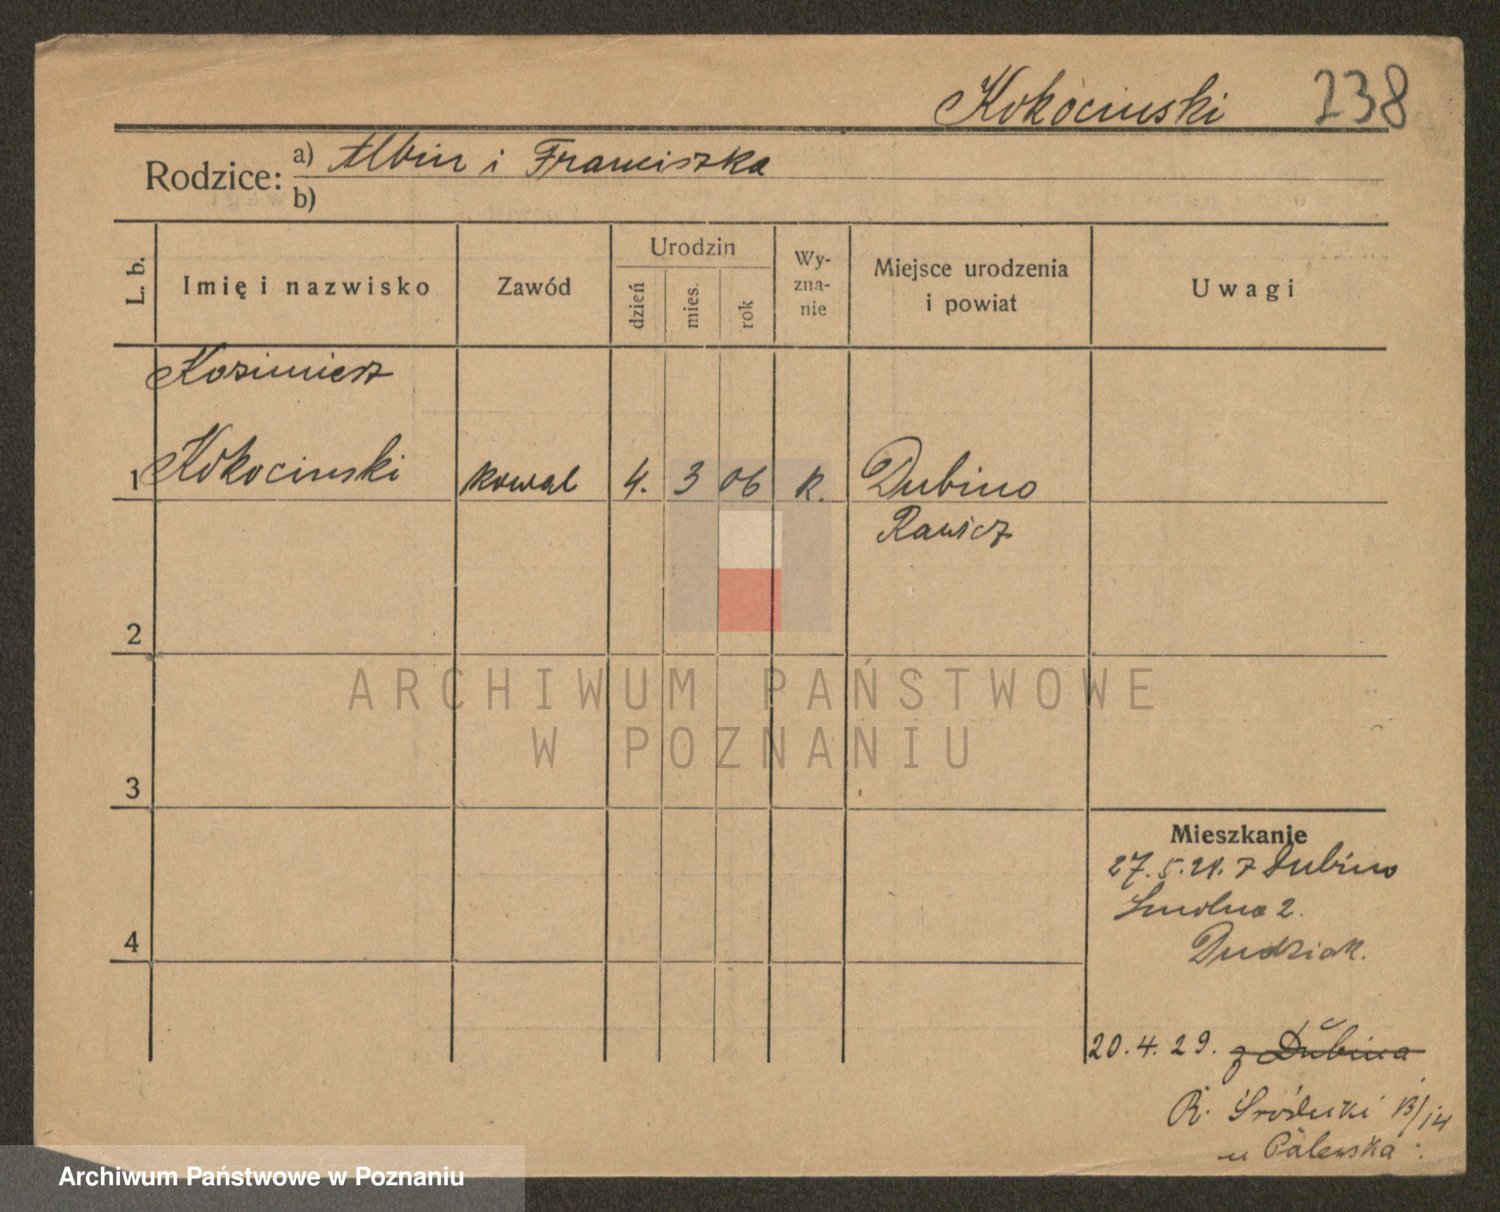 Kokociński 238
Rodzice: a) Albin i Franciszka
b)
L. b. Imię i nazwisko Zawód Urodzin dzień mies. rok Wy-zna-nie Miejsce urodzenia i powiat Uwagi
Kazimierz
1 Kokocinski kowal 4. 3 06 k. Dubino
Rawicz
2
3
Mieszkanie
27.5.28. z Dubino
Smolna 2.
Dudziak.
4
20.4.29. z Dubina
R. Śródecki 13/14
u Palewska
ARCHIWUM PAŃSTWOWE
W POZNANIU
Archiwum Państwowe w Poznaniu